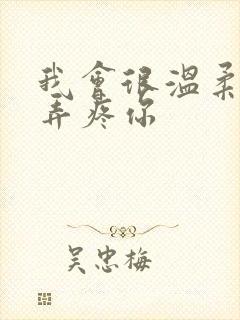 我會很溫柔
弄疼你
吳忠梅